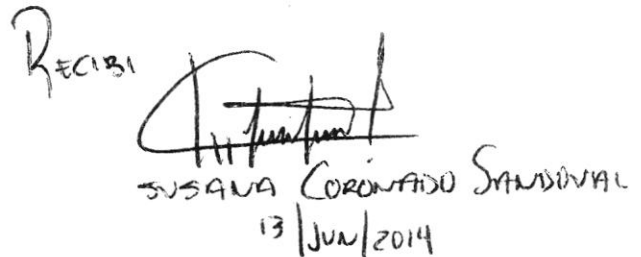 RECIBI
SUSANA CORONADO SANDOVAL
13/JUN/2014